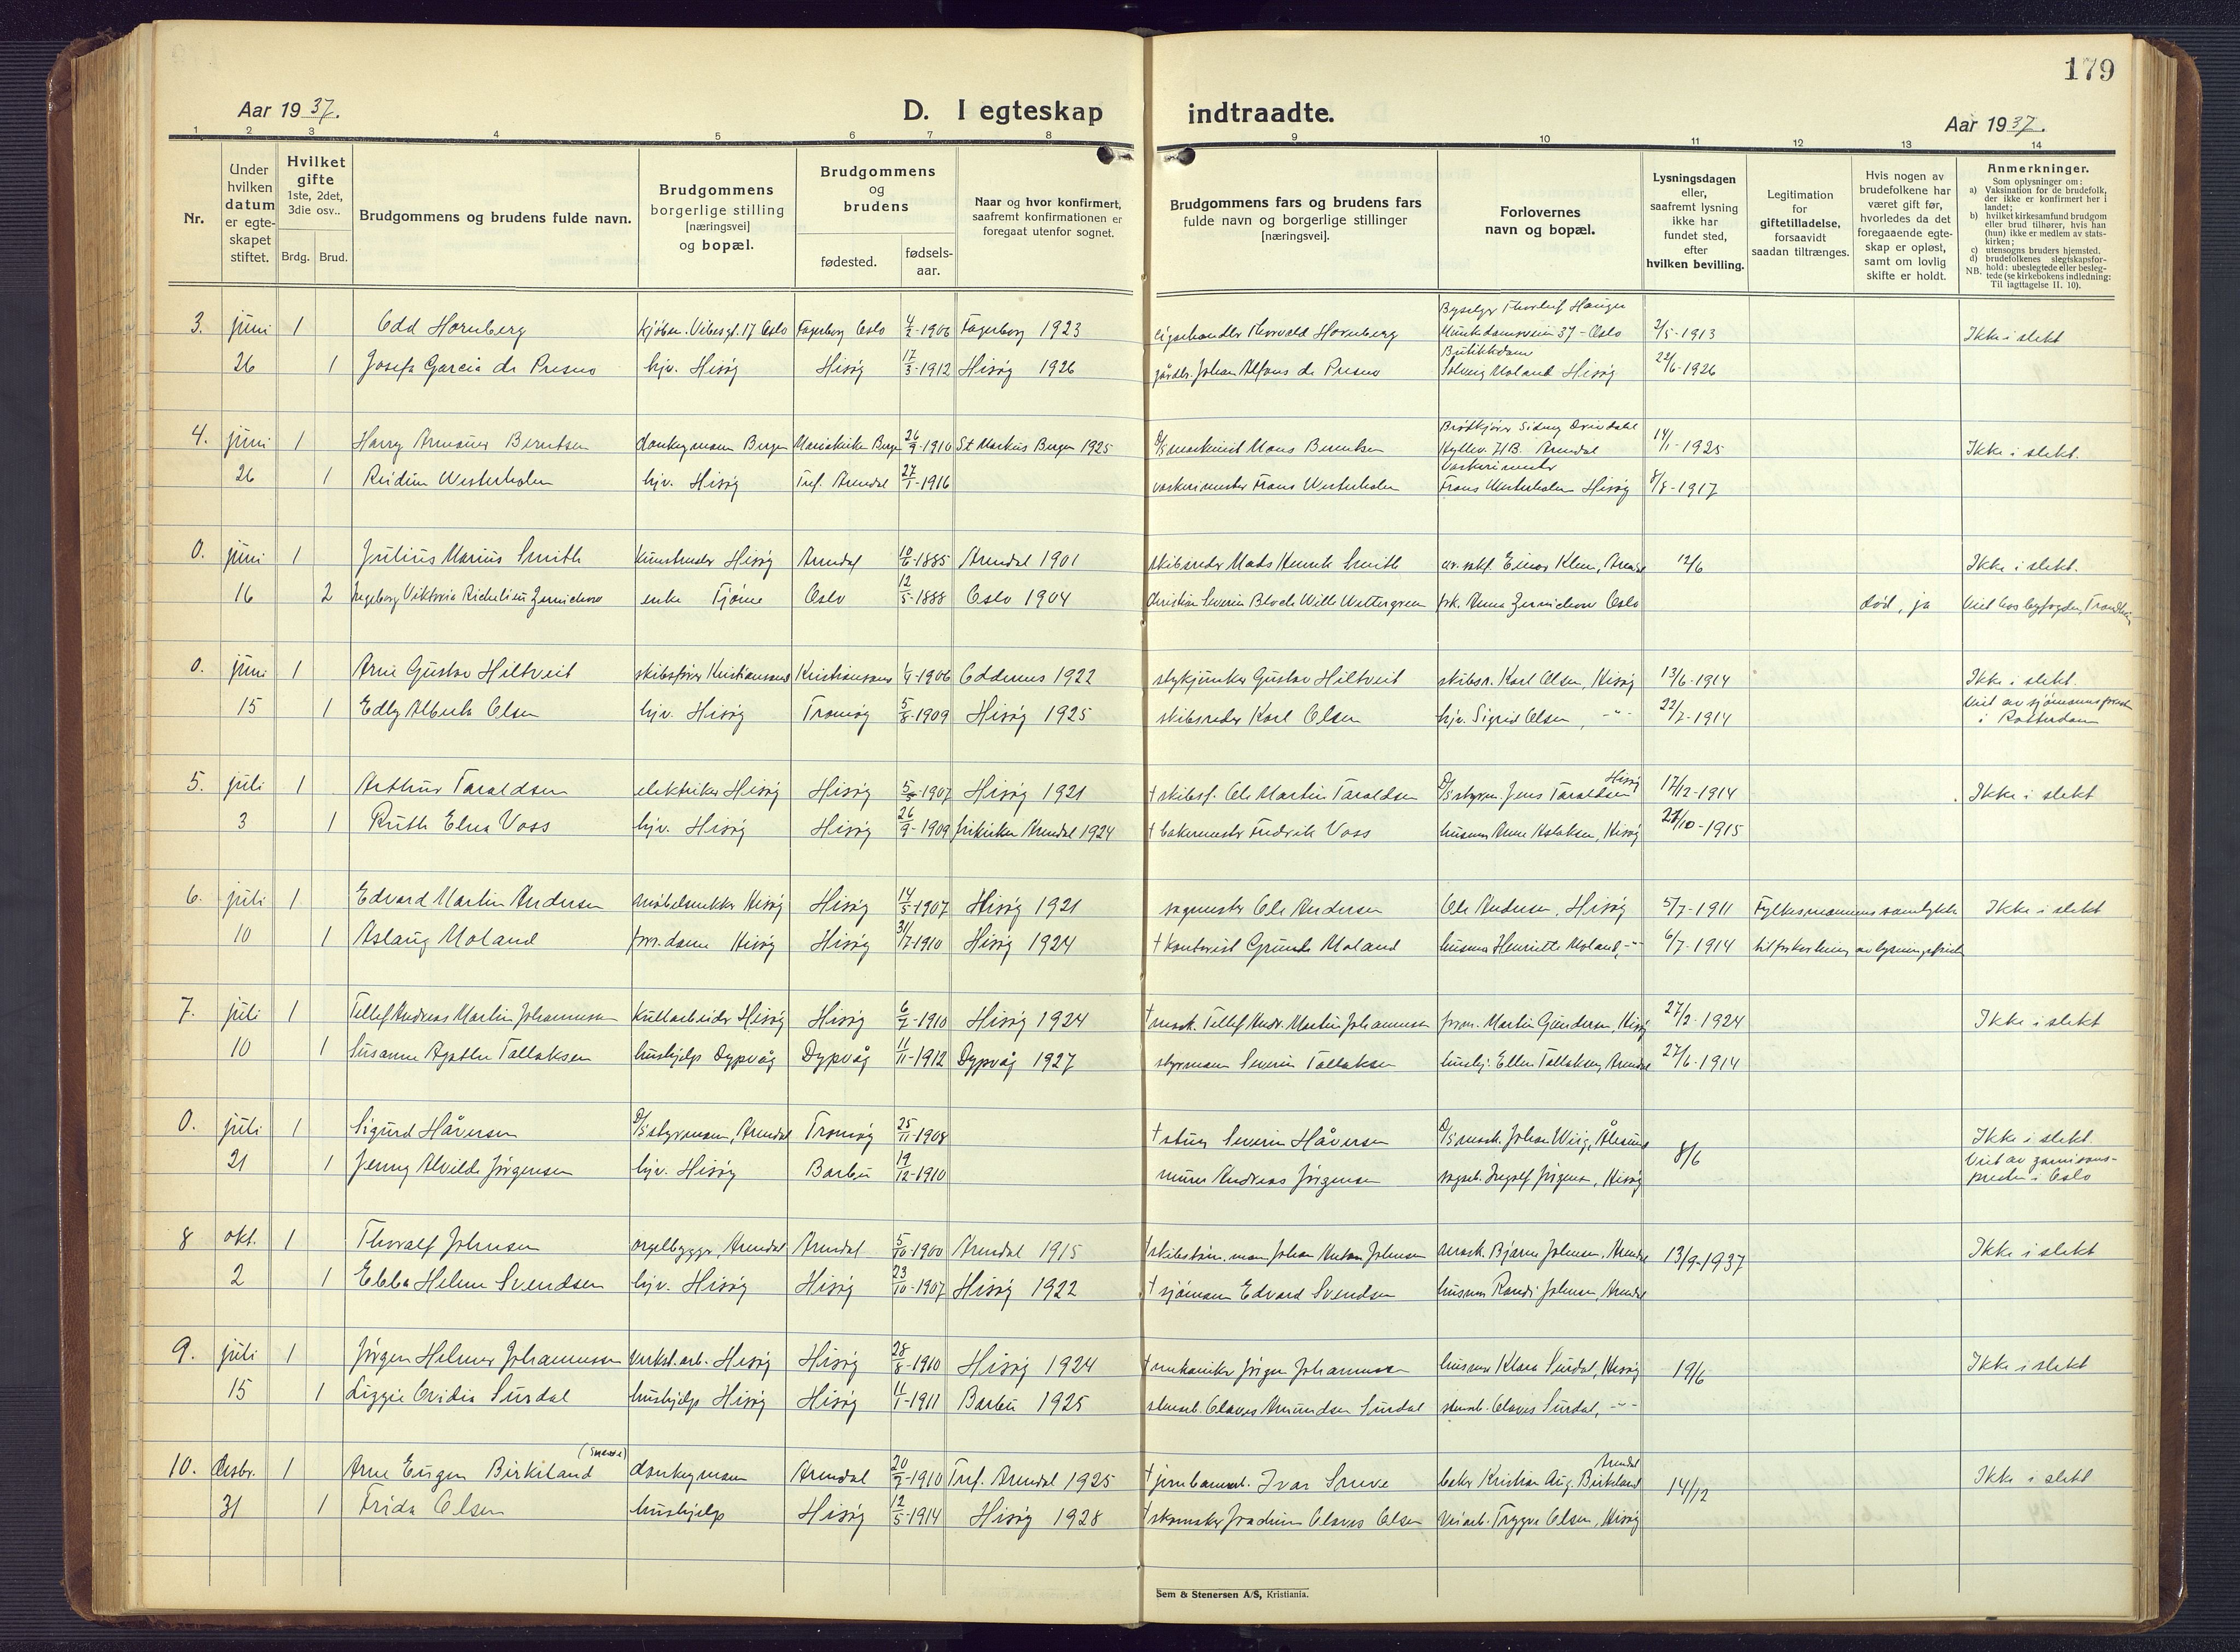 179
Aar 1937.
D. I egteskap indtraadte.
Aar 1937.
1 2 3 4 5 6 7 8 9 10 11 12 13 14
Nr.
Under hvilken datum er egteskapet stiftet.
Hvilket gifte 1ste, 2det, 3die osv..
Brdg. Brud.
Brudgommens og brudens fulde navn.
Brudgommens borgerlige stilling [næringsvei] og bopæl.
Brudgommens og brudens
fødested.
fødsels-aar.
Naar og hvor konfirmert, saafremt konfirmationen er foregaat utenfor sognet.
Brudgommens fars og brudens fars fulde navn og borgerlige stillinger [næringsvei].
Forlovernes navn og bopæl.
Lysningsdagen eller, saafremt lysning ikke har fundet sted, efter hvilken bevilling.
Legitimation for giftetilladelse, forsaavidt saadan tiltrænges.
Hvis nogen av brudefolkene har været gift før, hvorledes da det foregaaende egteskap er opløst, samt om lovlig skifte er holdt.
Anmerkninger.
Som oplysninger om:
a) Vaksination for de brudefolk, der ikke er konfirmert her i landet;
b) hvilket kirkesamfund brudgom eller brud tilhører, hvis han (hun) ikke er medlem av statskirken;
c) utensogns bruders hjemsted.
d) brudefolkenes slegtskapsforhold: ubeslegtede eller beslegtede (se kirkebokens indledning: Til iagttagelse II. 10).
NB.
3. juni 1 Odd Hornberg kjøbm. Vibesgt. 17 Oslo Fagerborg Oslo 4/2-1906 Fagerborg 1923 Thorvald Hornberg Munkedamsveien 37 - Oslo 2/5-1913 Ikke i slekt
26 1 Josefa Garcia de Presno hjv. Hisøy Hisøy 17/3-1912 Hisøy 1926 Johan Alfons de Presno Butikkdame Solveig Moland Hisøy 22/6-1926
4. juni 1 Harry Armauer Berntsen donkeymann Bergen Mariakirken Bergen 26/9-1910 St Markus Bergen 1925 maskinist Mons Berntsen Arendal 14/1-1925 Ikke i slekt.
26 1 Reidun Westerholm hjv. Hisøy Tref. Arendal 27/1-1916 vaskerimester Frans Westerholm Vaskerimester Frans Westerholm Hisøy 8/8-1917
0. juni 1 Julius Marius Smith kunstmaler Hisøy Arendal 10/6-1885 Arendal 1901 skibsreder Mads Henrik Smith Einar Klem, Arendal 12/6 Ikke i slekt.
16 2 Ingeborg Viktoria Richelieu Zernichow enke Tjøme Oslo 12/5-1888 Oslo 1904 Christian Severin Bloch Wille Wettergreen frk. Anna Zernichow Oslo død, ja Viet hos byfogden, Trondheim
0. juni 1 Arne Gustav Hiltveit skibsfører Kristiansand Kristiansand 1/4-1906 Oddernes 1922 stykjunker Gustav Hiltveit skibsr. Karl Olsen, Hisøy 13/6-1914 Ikke i slekt.
15 1 Edly Alberta Olsen hjv. Hisøy Tromøy 5/8-1909 Hisøy 1925 skibsreder Karl Olsen hjv. Sigrid Olsen, -"- 22/7-1914 Viet av sjømannsprest i Rotterdam
5. juli 1 Arthur Taraldsen elektriker Hisøy Hisøy 5/5-1907 Hisøy 1921 † skibsf. Ole Martin Taraldsen styrm. Jens Taraldsen Hisøy 17/12-1914 Ikke i slekt
3 1 Ruth Elna Voss hjv. Hisøy Hisøy 26/9-1909 frikirken Arendal 1924 † bakermester Fredrik Voss husmor Anne Aslaksen, Hisøy 27/10-1915
6. juli 1 Edvard Martin Andersen møbelsnekker Hisøy Hisøy 14/5-1907 Hisøy 1921 sagmester Ole Andersen Ole Andersen, Hisøy 5/7-1911 Fylkesmannens samtykke Ikke i slekt
10 1 Aslaug Moland forr.dame Hisøy Hisøy 31/7-1910 Hisøy 1924 † kontorist Grunde Moland husmor Henriette Moland, -"- 6/7-1914 til forkortning av lysningsfristen
7. juli 1 Tellef Andreas Martin Johannessen kullarbeider Hisøy Hisøy 6/7-1910 Hisøy 1924 † mask. Tellef Andr. Martin Johannessen form. Martin Gundersen, Hisøy 27/2-1924 Ikke i slekt
10 1 Susanne Agathe Tallaksen hushjelp Dypvåg Dypvåg 11/11-1912 Dypvåg 1927 styrmann Severin Tallaksen hushj. Ellen Tallaksen, Arendal 27/6-1914
0. juli 1 Sigurd Håversen styrmann, Arendal Tromøy 25/11-1908 † stuer Severin Håversen mask. Johan Wiig, Ålesund 8/6 Ikke i slekt.
21 1 Jenny Alvilde Jørgensen hjv. Hisøy Barbu 19/12-1910 murer Andreas Jørgensen Ingolf Jørgensen, Hisøy Viet av garnisonspresten i Oslo
8 okt. 1 Thoralf Johnsen orgelbygger, Arendal Arendal 5/10-1900 Arendal 1915 † skibstøm.mann Johan Anton Johnsen mask. Bjarne Johnsen, Arendal 13/9-1937 Ikke i slekt
2 1 Ebba Helene Svendsen hjv. Hisøy Hisøy 23/10-1907 Hisøy 1922 † sjømann Edvard Svendsen husmor Randi Johnsen, Arendal
9. juli 1 Jørgen Helmer Johannessen verkst.arb. Hisøy Hisøy 28/8-1910 Hisøy 1924 † mekaniker Jørgen Johannessen husmor Klara Surdal, Hisøy 19/6 Ikke i slekt
15 1 Lizzie Ovidia Surdal hushjelp Hisøy Hisøy 11/1-1911 Barbu 1925 stenarb. Olaves Amundsen Surdal stenarb. Olaves Surdal, -"-
10. desbr. 1 Arne Eugen Birkeland donkeymann Arendal 20/7-1910 Tref. Arendal 1925 † jernbanearb. Ivar Sneve baker Kristian Aug. Birkeland Arendal 14/12 Ikke i slekt
31 1 Frida Olsen hushjelp Hisøy 12/5-1914 Hisøy 1928 † skomaker Joachim Olaves Olsen veiarb. Trygve Olsen, Hisøy
Sem & Stenersen A/S, Kristiania.